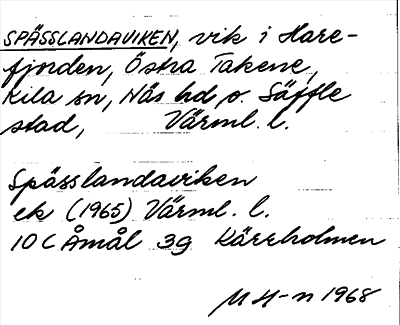 SPÄSSLANDAVIKEN, vik i Hare-
fjorden, Östra Takene,
Kila sn, Näs hd o. Säffle
stad, Värml. l.
Spässlandaviken
ek (1965) Värml. l.
10C Åmål 3g Kärrholmen
M H-n 1968